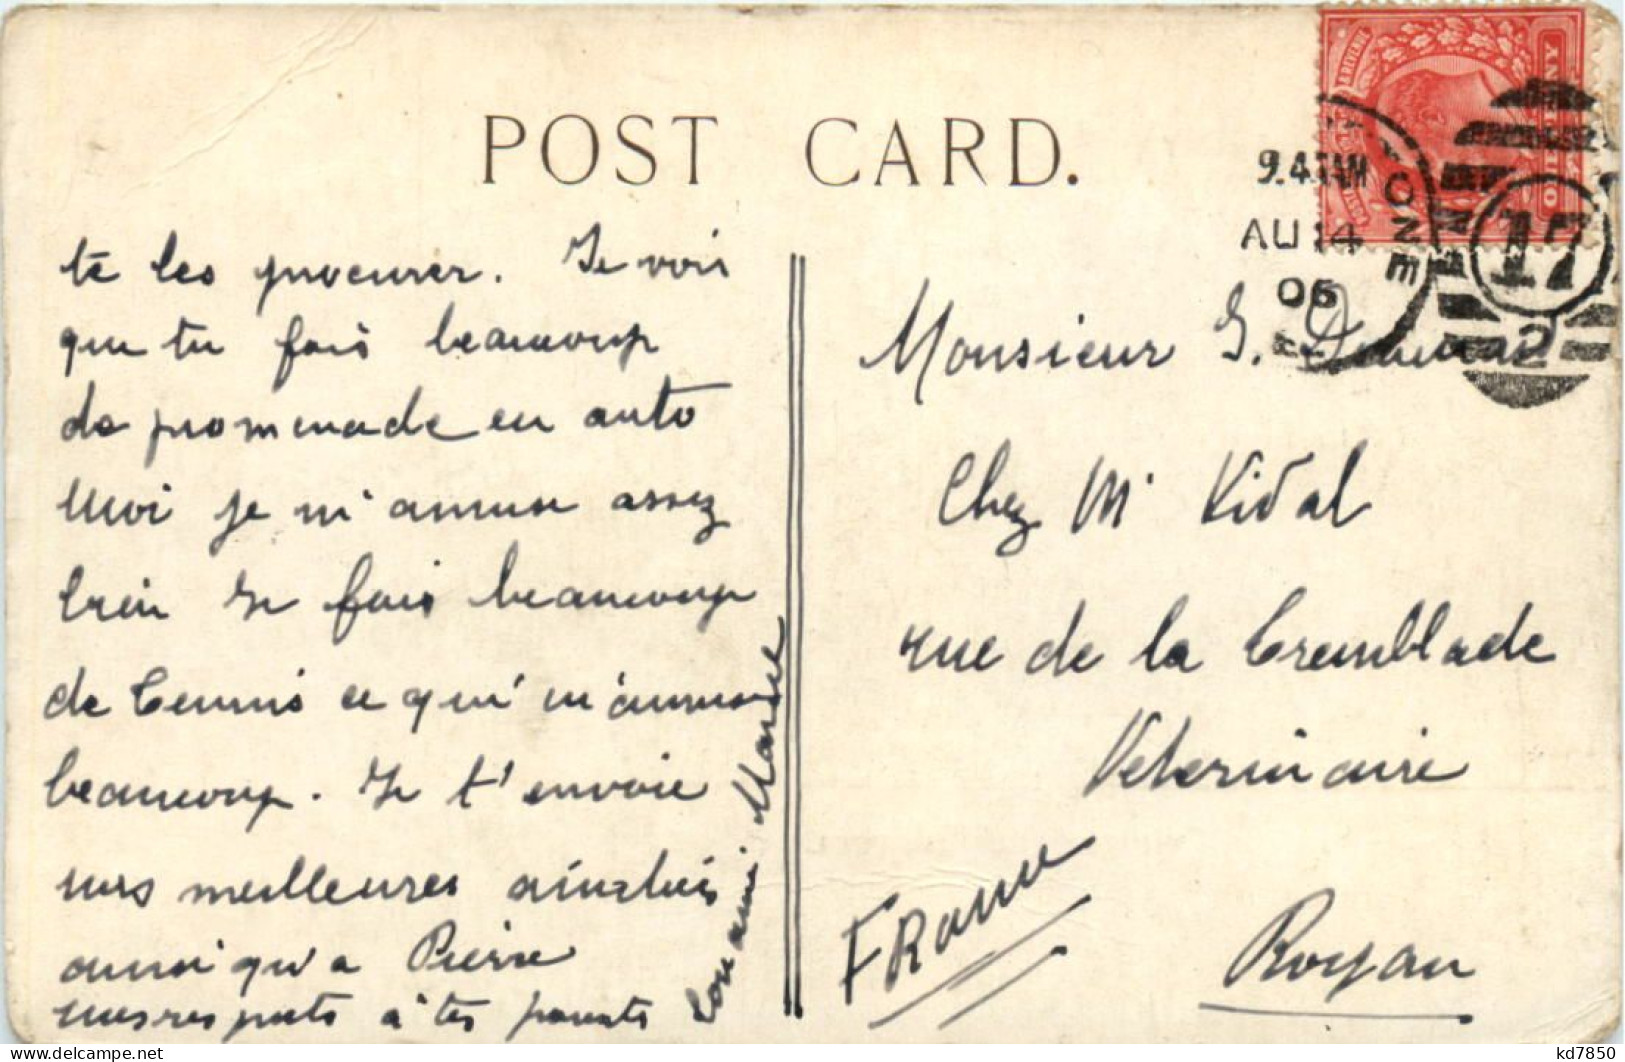 POST CARD.
te les procurer. Je vois
que tu fais beaucoup
de promenade en auto
moi je m'amuse assez
bien Je fais beaucoup
de Tennis ce qui m'amuse
beaucoup. Je t'envoie
mes meilleures amitiés
ainsi qu'a Pierre
mes respects à tes parents
ton ami Marcel
9.45AM
AU 14
06
17
2
Monsieur G.
Chez Mr Vidal
rue de la Tremblade
Veterinaire
France
Royan
kd7850